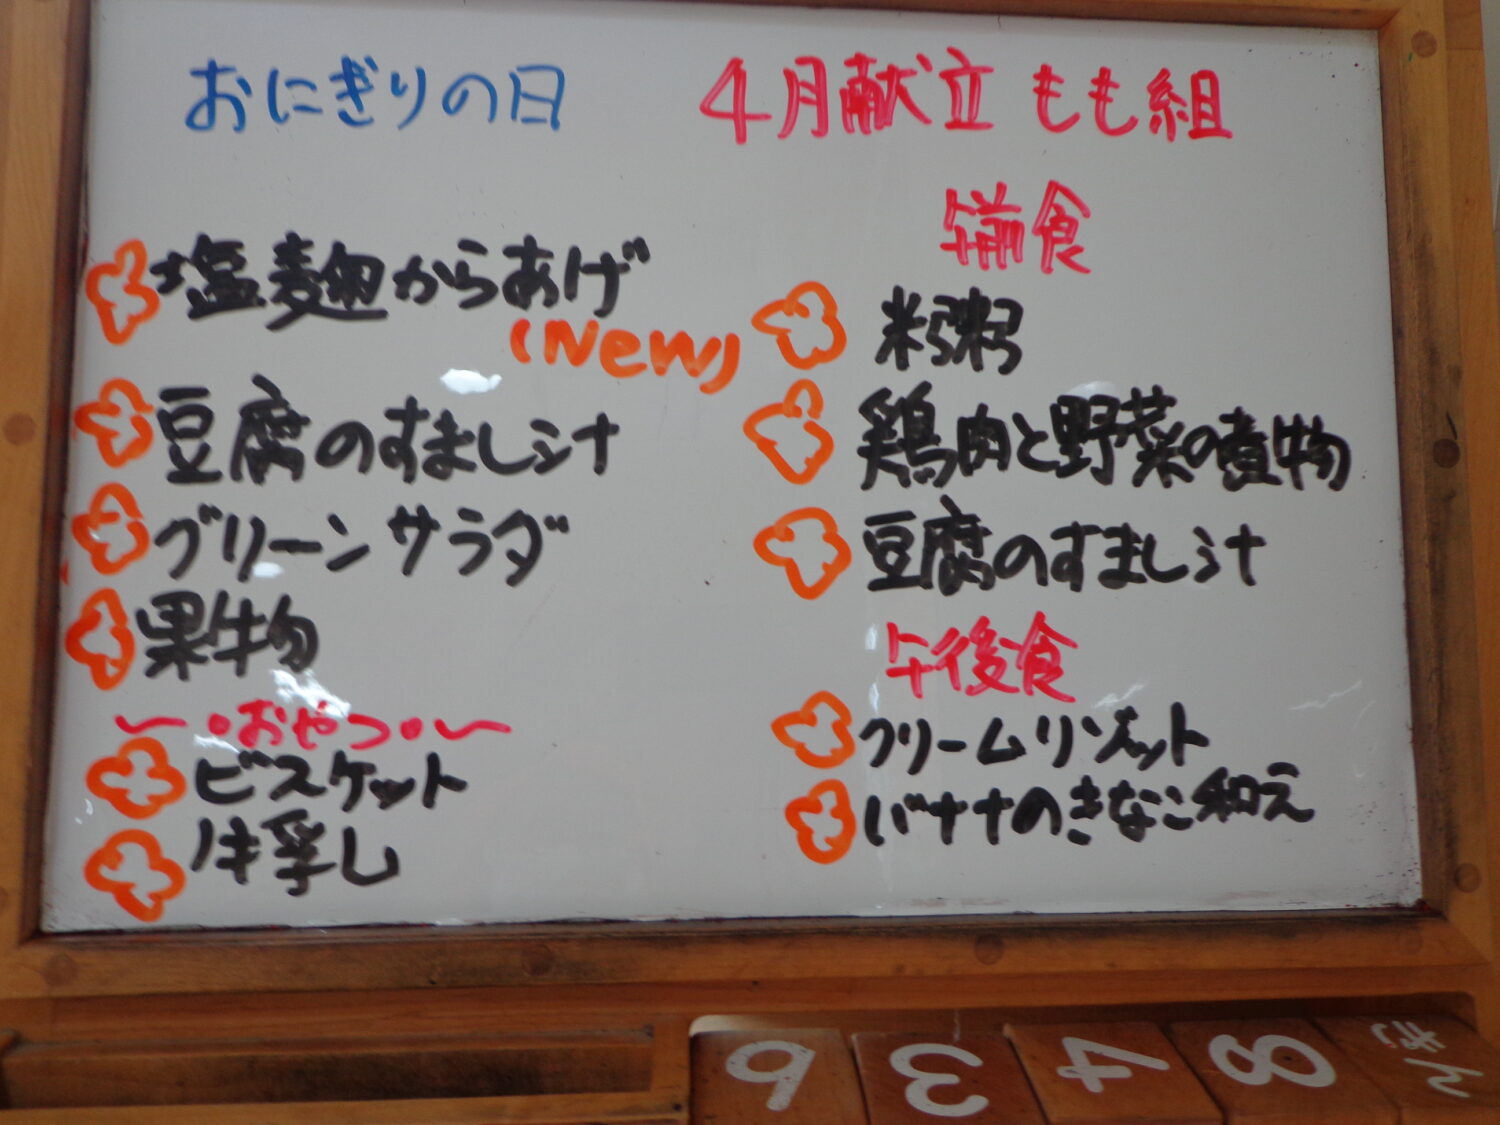 おにぎりの日
塩麹からあげ
(New)
豆腐のすまし汁
グリーンサラダ
果物
～・おやつ・～
ビスケット
牛乳
4月献立 もも組
午前食
米粥
鶏肉と野菜の煮物
豆腐のすまし汁
午後食
クリームリゾット
バナナのきなこ和え
6 3 4 8 きん